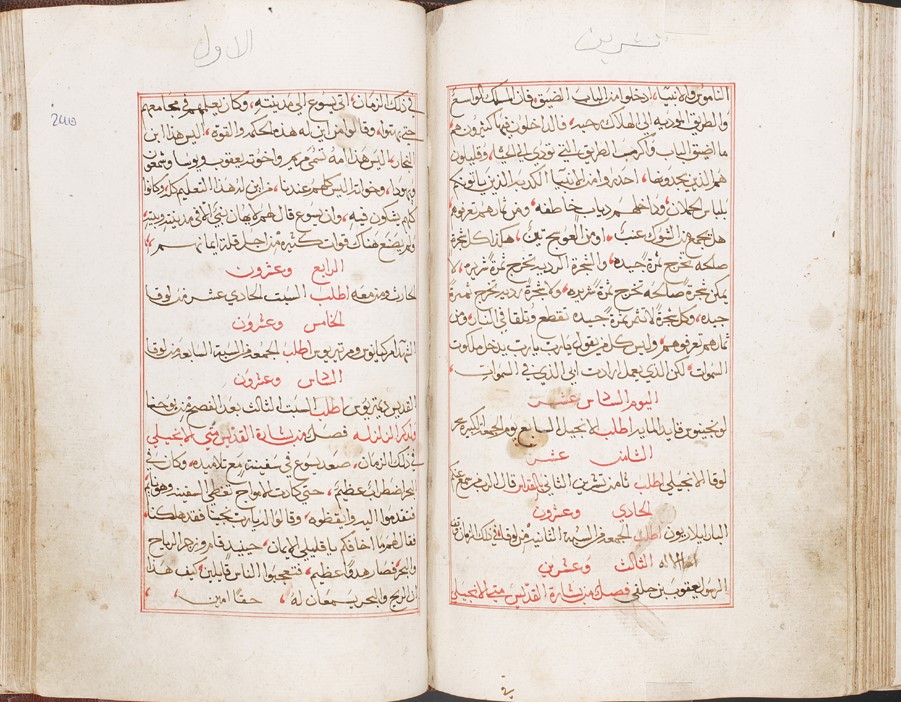 تشرين
الناموس والانبيا، ادخلوا من الباب الضيق، فان المسلك الواسع
والطريق الموديه الى الهلاك رحبه، فالداخلون فيها كثيرون هم
ما اضيق الباب واكرب الطريق التي تودي الى الحياه، وقليلون
هم الذين يجدوها، احذروا من الانبيا الكذبه الذين ياتونكم
بلباس الحملان، وداخلهم دياب خاطفه، ومن ثمارهم تعرفوهم
هل يجمع من الشوك عنب، او من العوسج تين، هكذا كل شجرة
صلحه تخرج ثمرة جيده، والشجرة الرديه تخرج ثمرة شريره، لا
يمكن شجرة صالحه تخرج ثمرة شريره، ولا شجرة رديه تخرج ثمرة
جيده، وكل شجرة لا تثمر ثمرة جيده تقطع وتلقا في النار، ومن
ثمارهم تعرفوهم، وليس كل من يقول لي يارب يارب يدخل ملكوت
السموات، لكن الذي يعمل ارادت ابي الذي في السموات،
اليوم السادس عشر
لونجينوس قايد المايه اطلب الانجيل السابع يوم الجمعه الكبيره
الثامن عشر
لوقا الانجيلي اطلب ثامن تشرين الثاني قال الرب
الحادي وعشرون
البار ايلاريون اطلب الجمعه من السبه الثانيه من لوقا في ذلك الزمان
الثالث وعشرين
الرسول يعقوب بن حلفي فصل من بشارة القديس متي الانجيلي
الاول
في ذلك الزمان، اتى يسوع الي مدينته، وكان يعلمهم في مجامعهم
حتي بهتوا، وقالوا من اين له هذه الحكمه والقوة، اليس هذا ابن
النجار، اليس هذا امه تسمي مريم، واخوته يعقوب ويوسا وشمعون
ويهودا، وخواته اليس كلهم عندنا، فمن اين له هذا التعليم كله وكانوا
كلهم يشكون فيه، وان يسوع قال لهم لا يهان نبي الا في مدينته وبيته
ولم يصنع هناك قوات كثيره من اجل قلة ايمانهم
الرابع وعشرون
الحارث ومن معه اطلب السبت الحادي عشر من لوقا
الخامس وعشرون
الشهدا مركيانوس ومرتيريوس اطلب الجمعه من السبه السابعه من لوقا
السادس وعشرون
القديس ديمتريوس اطلب السبت الثالث بعد الفصح من يوحنا
وتذكار الزلزله فصل من بشارة القديس متي الانجيلي
في ذلك الزمان، صعد يسوع في سفينة مع تلاميذه، وكان في
البحر اضطراب عظيم، حتي كادت الامواج تغطي السفينه وهو نايم
فتقدموا اليه وايقظوه، وقالوا له يارب نجينا فقد هلكنا
فقال لهم ما اخافكم يا قليلي الايمان، حينيد قام وزجر الرياح
والبحر فصار هدوا عظيم، فتعجبوا الناس قايلين، كيف هذا
ان الريح والبحر يسمعان له، حقا امين،